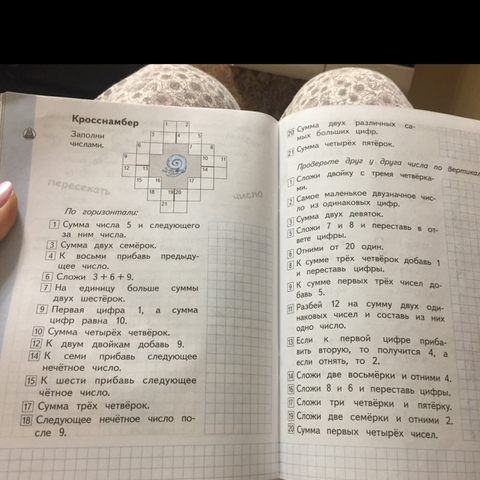 Кросснамбер
Заполни
числами.
1 2
3 4 5
6 7 8
9 10 11
12 13 14
15 16 17
18 19 20
21
пересекать
число
По горизонтали:
1 Сумма числа 5 и следующего
за ним числа.
3 Сумма двух семёрок.
4 К восьми прибавь предыду-
щее число.
6 Сложи 3 + 6 + 9.
7 На единицу больше суммы
двух шестёрок.
9 Первая цифра 1, а сумма
цифр равна 10.
10 Сумма четырёх четвёрок.
12 К двум двойкам добавь 9.
14 К семи прибавь следующее
нечётное число.
15 К шести прибавь следующее
чётное число.
17 Сумма трёх четвёрок.
18 Следующее нечётное число по-
сле 9.
20 Сумма двух различных са-
мых больших цифр.
21 Сумма четырёх пятёрок.
Проверьте друг у друга числа по вертикали
1 Сложи двойку с тремя четвёрка-
ми.
2 Самое маленькое двузначное чис-
ло из одинаковых цифр.
3 Сумма двух девяток.
5 Сложи 7 и 8 и переставь в от-
вете цифры.
6 Отними от 20 один.
8 К сумме трёх четвёрок добавь 1
и переставь цифры.
9 К сумме первых трёх чисел до-
бавь 5.
11 Разбей 12 на сумму двух оди-
наковых чисел и составь из них
одно число.
13 Если к первой цифре приба-
вить вторую, то получится 4, а
если отнять, то 2.
14 Сложи две восьмёрки и отними 4.
16 Сложи 8 и 6 и переставь цифры.
17 Сложи три четвёрки и пятёрку.
19 Сложи две семёрки и отними 2.
20 Сумма первых четырёх чисел.